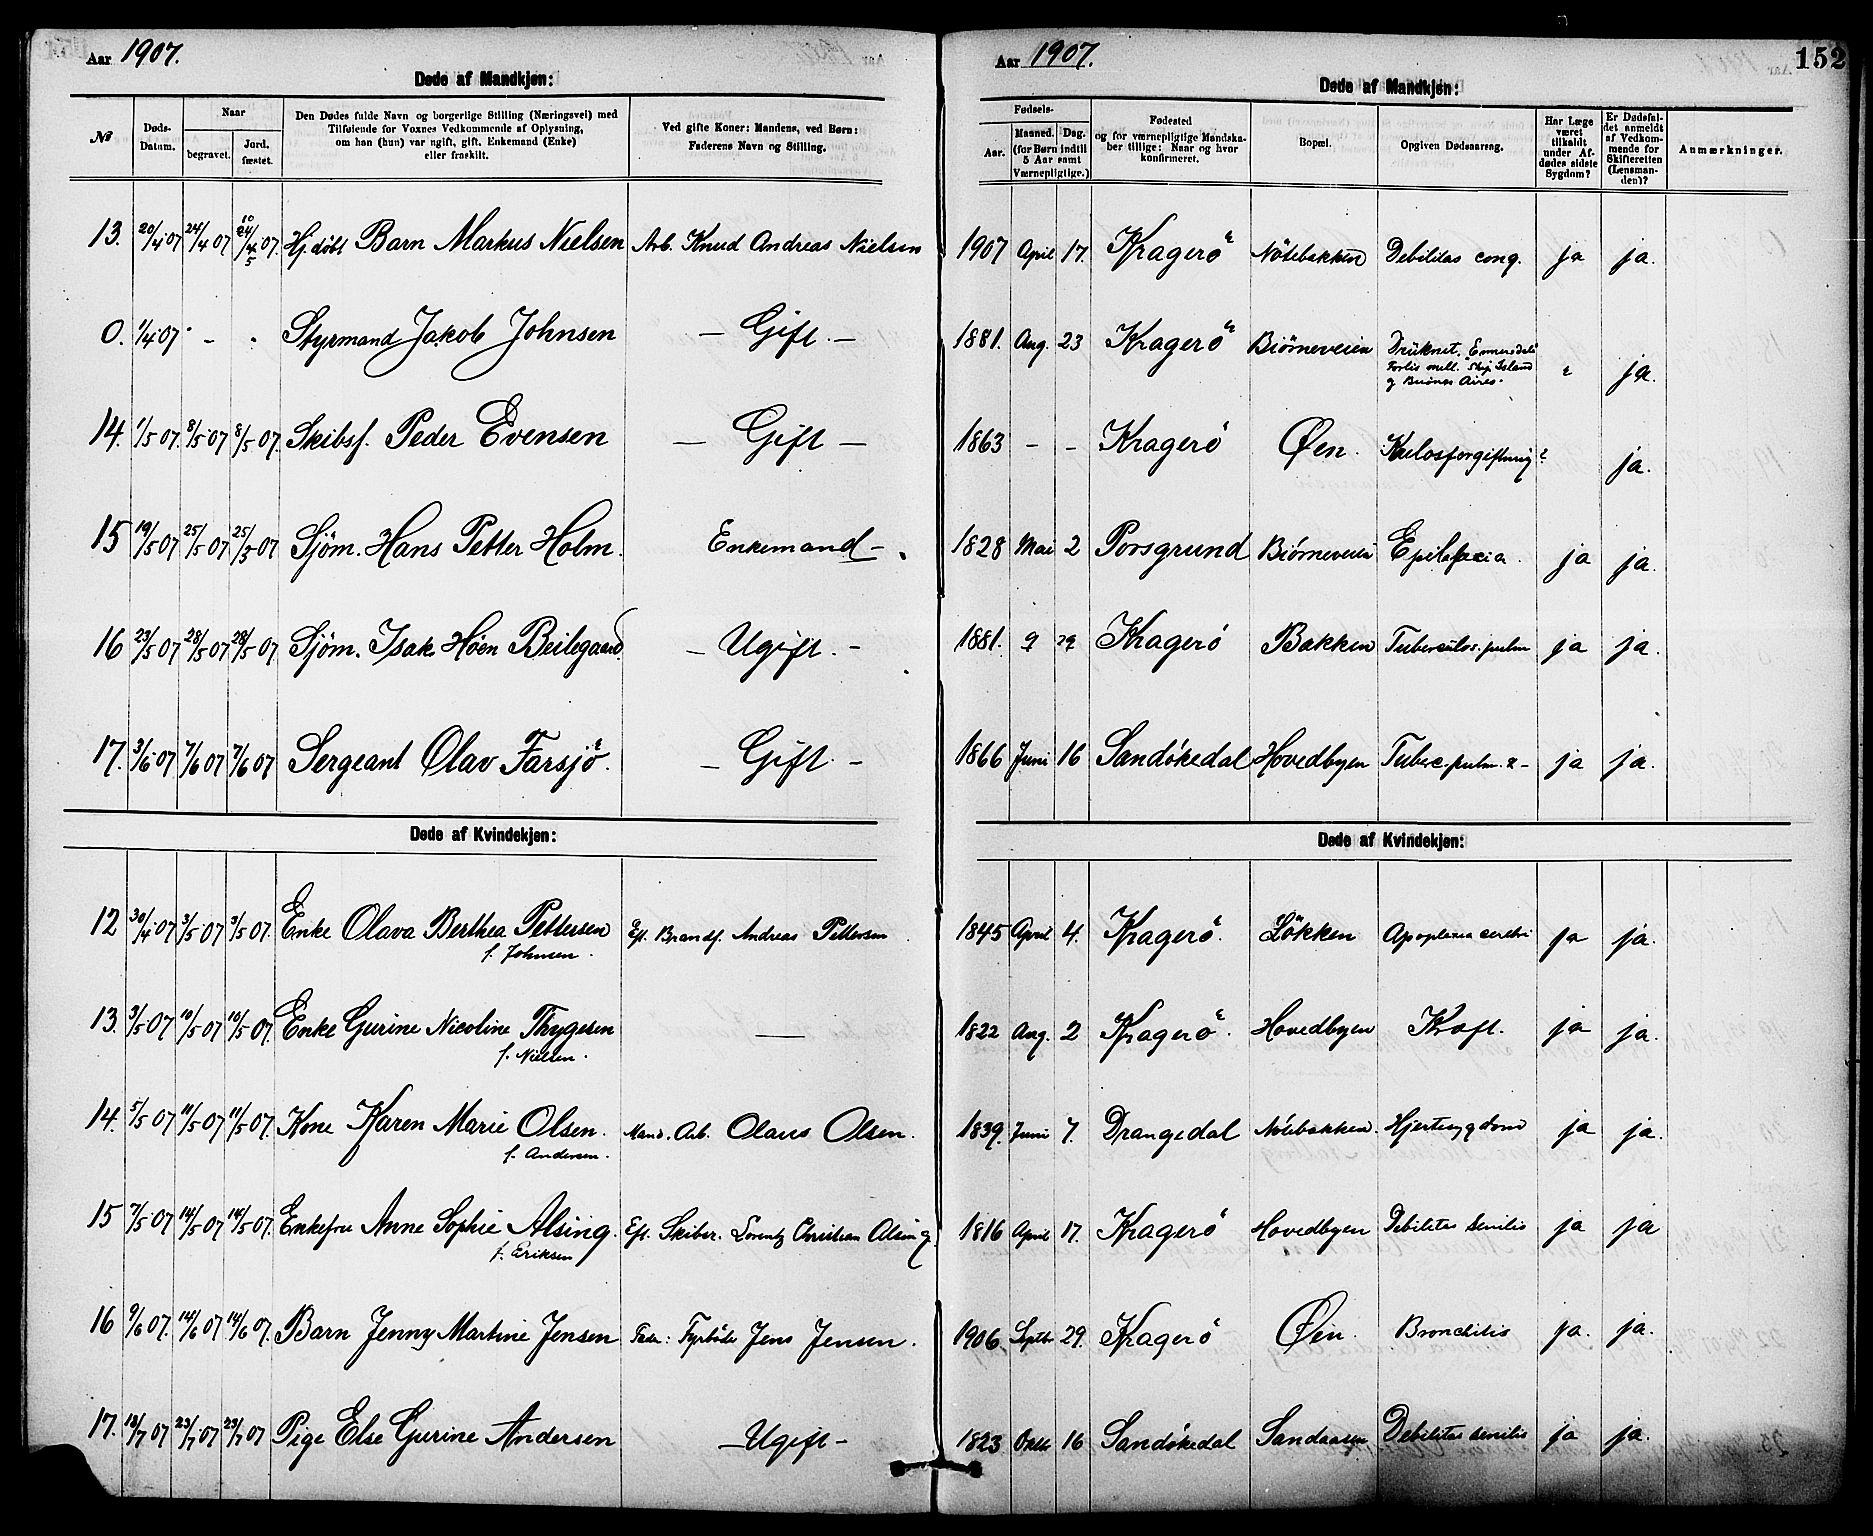 Aar 1907.
Døde af Mandkjøn:
№ Døds-Datum. Naar begravet. Jord. fæstet. Den Dødes fulde Navn og borgerlige Stilling (Næringsvei) med Tilføiende for Voxnes Vedkommende af Oplysning, om han (hun) var ugift, gift, Enkemand (Enke) eller fraskilt. Ved gifte Koner: Mandens, ved Børn: Faderens Navn og Stilling.
13. 20/4 07 24/4 07 Hj. døbt Barn Markus Nielsen Arb. Knud Andreas Nielsen
0. 1/4 07 - Styrmand Jakob Johnsen - Gift. -
14. 1/5 07. 8/5 07 8/5 07. Skibsf. Peder Evensen - Gift -
15 19/5 07 25/5 07 25/5 07 Sjöm. Hans Petter Holm. Enkemand -
16 23/5 07 28/5 07 28/5 07 Sjöm. Isak Höen Beilegaard. - Ugift. -
17. 3/6 07 7/6 07 7/6 07 Sergeant Olav Farsjö. - Gift. -
Døde af Kvindekjøn:
12 30/4 07 3/5 07 3/5 07. Enke Olava Berthea Pettersen Ef. Brandf. Andreas Pettersen
f. Johnsen.
13. 3/5 07 10/5 07 10/5 07. Enke Gurine Nicoline Thygesen —
f. Nielsen.
14. 5/5 07 11/5 07 11/5 07. Kone Karen Marie Olsen. Mand. Arb. Olaus Olsen.
f. Andersen.
15 7/5 07 14/5 07 14/5 07. Enkefru Anne Sophie Alsing. Eft. Skiber. Lorentz Christian Alsing.
f. Eriksen
16 9/6 07. 14/6 07 14/6 07. Barn Jenny Martine Jensen Fader: Fyrböder Jens Jensen.
17. 18/7 07 23/7 07 23/7 07 Pige Else Gurine Andersen - Ugift -
Aar 1907. 152
Døde af Mandkjøn:
Fødsels- Aar. Maaned. Dag. (for Børn indtil 5 Aar samt Værnepligtige.) Fødested og for værnepligtige Mandskaber tillige: Naar og hvor konfirmeret. Bopæl. Opgiven Dødsaarsag. Har Læge været tilkaldt under Afdødes sidste Sygdom? Er Dødsfaldet anmeldt af Vedkommende for Skifteretten (Lensmanden)? Anmærkninger.
1907 April 17. Kragerö Nötebakken Debilitas cong. ja ja.
1881. Aug. 23 Kragerö Biörneveien Druknet.
Forlis mell. Ship Island
og Buenos Aires. ja.
1863 - - Kragerö Øen. ja.
1828 Mai 2 Porsgrund Biörneveien ja ja.
1881. Kragerö Bakken Tuberculos. pulm ja ja.
1866 Juni 16 Sandökedal Hovedbyen Tuberc. pulm. ja ja.
Døde af Kvindekjøn:
1845 April 4. Kragerö. Lökken Apoplexia cerebri ja ja.
1822 Aug. 2 Kragerö. Hovedbyen Kræft. ja ja.
1839. Juni 7. Drangedal Nötebakken. Hjertesygdom ja ja.
1816 April 17. Kragerö Hovedbyen Debilitas senilis ja ja
1906 Septbr 29. Kragerö Øen. Bronchitis ja. ja.
1823 Oktb 16 Sandökedal Sandaasen Debilitas senilis ja ja.